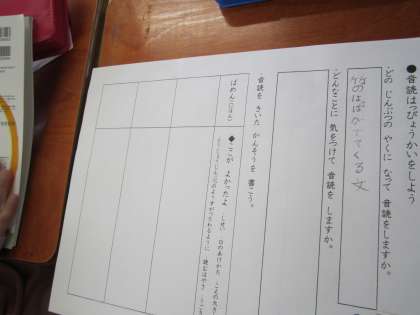 ●音読はっぴょうかいをしよう
・どの じんぶつの やくに なって 音読をしますか。
竹のはっぱがでてくる文
・どんなことに 気をつけて 音読を しますか。
音読を きいた かんそうを 書こう。
ばめん
◆ここが よかったよ しせい 口のあけかた こえの大き